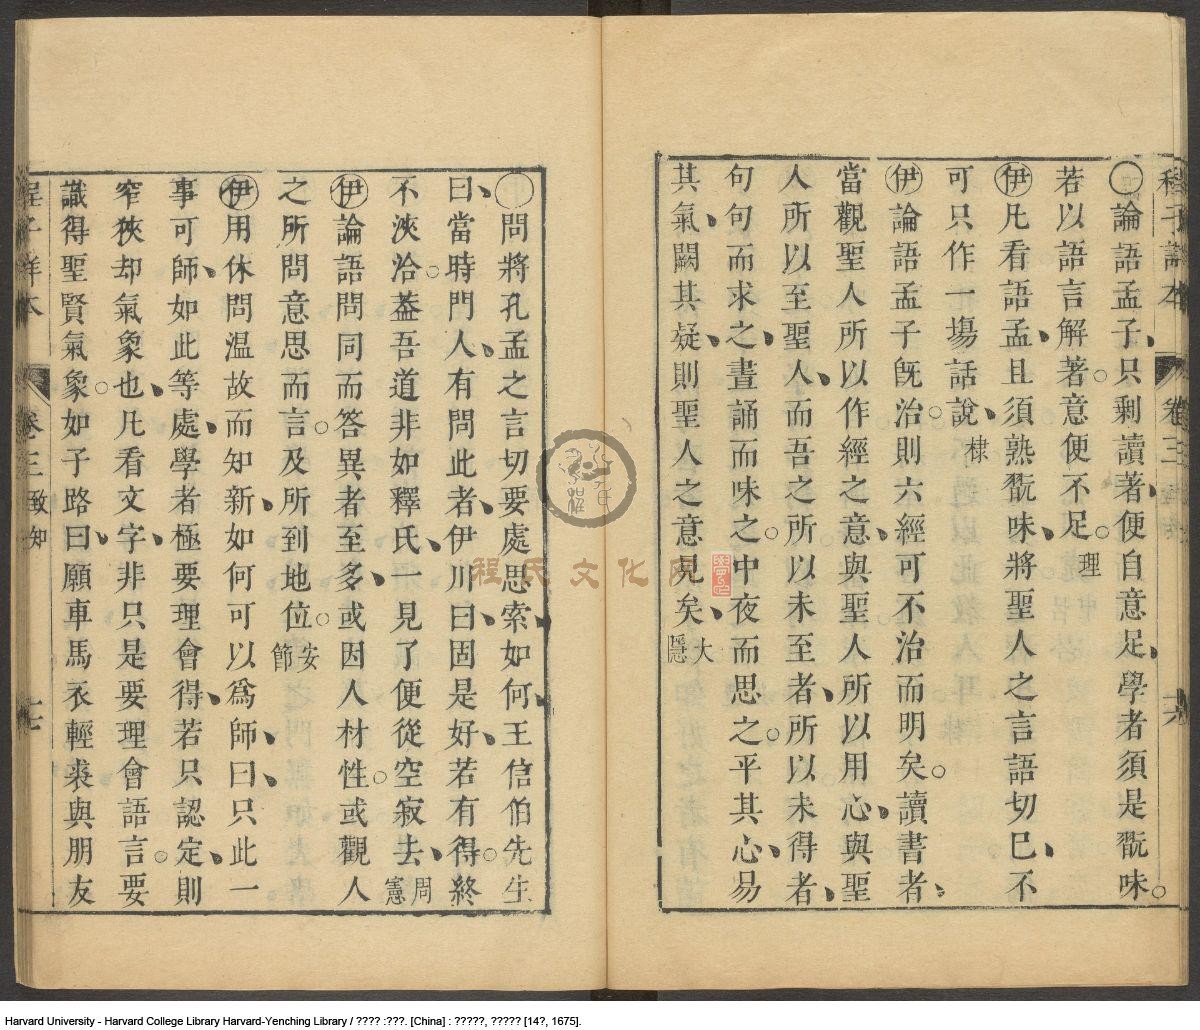 程子詳本 卷三 十六
〇論語孟子只剩讀著便自意足學者須是翫味
若以語言解著意便不足理
伊凡看語孟且須熟翫味將聖人之言語切已不
可只作一塲話說棣
伊論語孟子旣治則六經可不治而明矣讀書者
當觀聖人所以作經之意與聖人所以用心與聖
人所以至聖人而吾之所以未至者所以未得者
句句而求之晝誦而味之中夜而思之平其心易
其氣闕其疑則聖人之意見矣大隱
〇問將孔孟之言切要處思索如何王信伯先生
曰當時門人有問此者伊川曰固是好若有得終
不浹洽葢吾道非如釋氏一見了便從空寂去周憲
伊論語問同而答異者至多或因人材性或觀人
之所問意思而言及所到地位安節
伊用休問温故而知新如何可以爲師曰只此一
事可師如此等處學者極要理會得若只認定則
窄狹却氣象也凡看文字非只是要理會語言要
識得聖賢氣象如子路曰願車馬衣輕裘與朋友
程子詳本 卷三 致知 十七
程氏文化网
Harvard University - Harvard College Library Harvard-Yenching Library / ???? :???. [China] : ?????, ????? [14?, 1675].